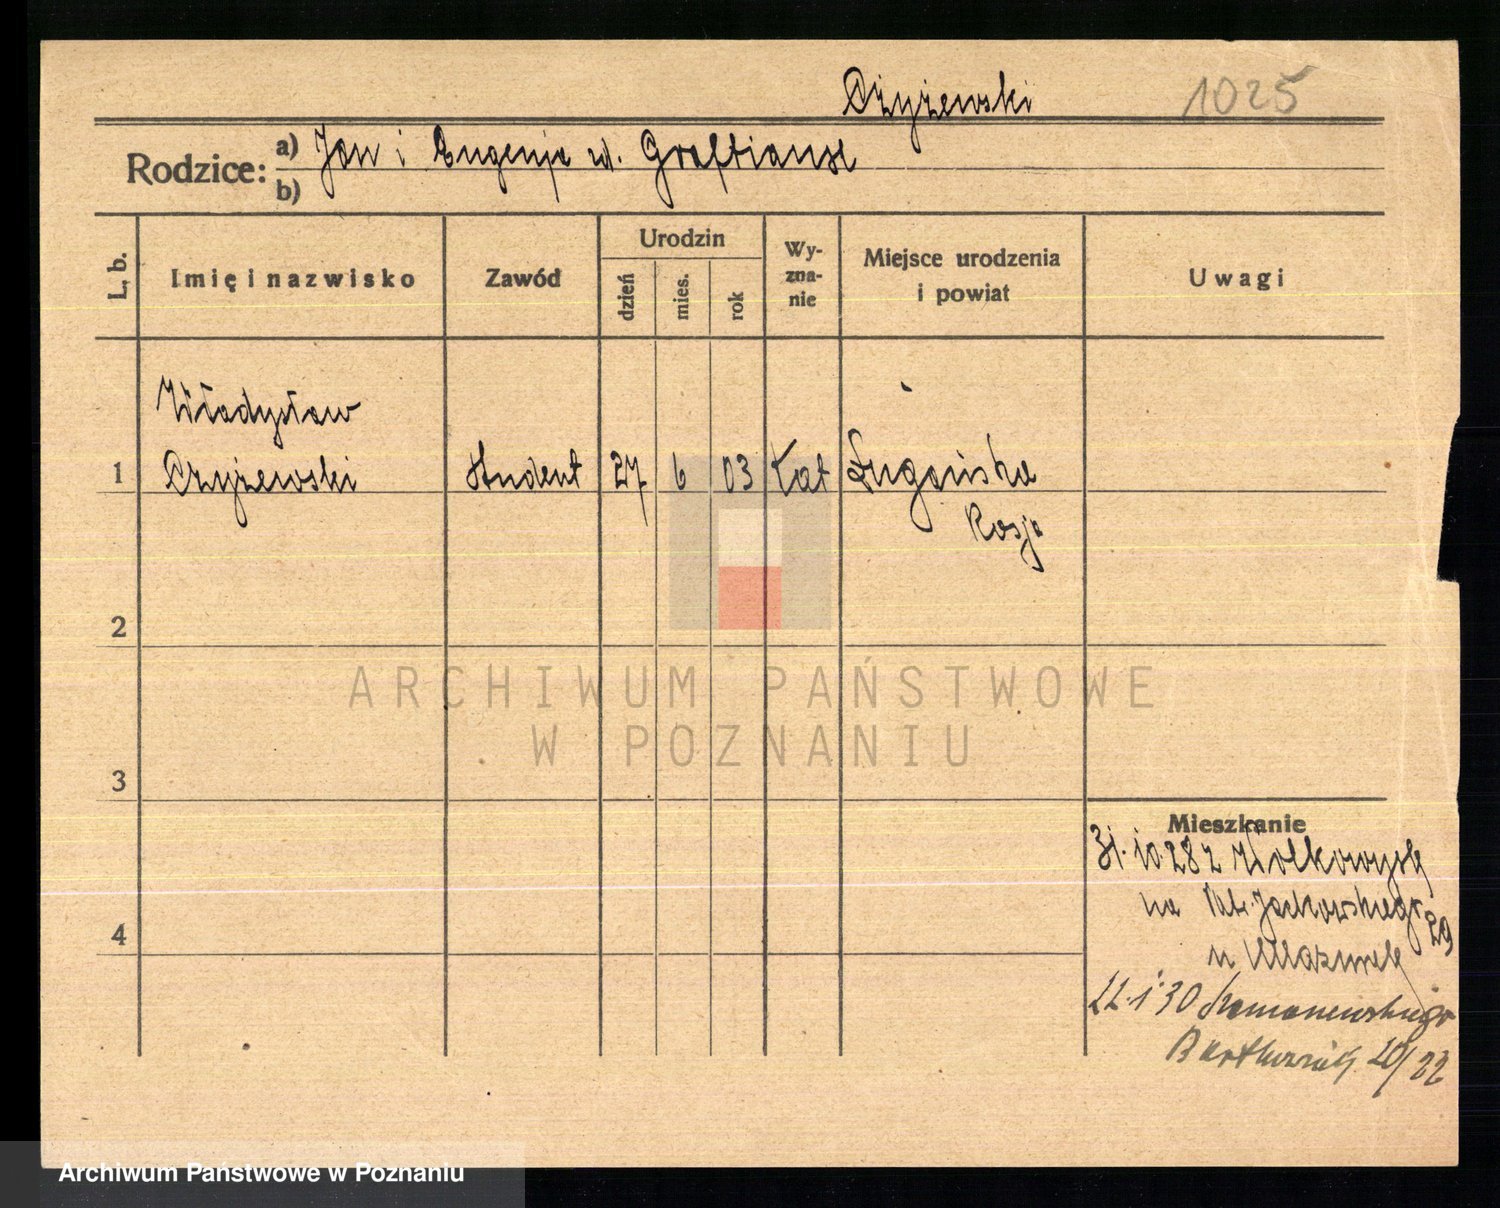 Dzyżewski 1025
Rodzice: a) Jan i Eugenja
b)
L. b. Imię i nazwisko Zawód Urodzin dzień mies. rok Wy-zna-nie Miejsce urodzenia i powiat Uwagi
Władysław
1 Dzyżewski Student 27 6 03 kat Ługańska
Rosja
2
ARCHIWUM PAŃSTWOWE
W POZNANIU
3
Mieszkanie
31.10.28 z Wołkowysk
na Jackowskiego 29
4
u
22.1 30
20/22
Archiwum Państwowe w Poznaniu